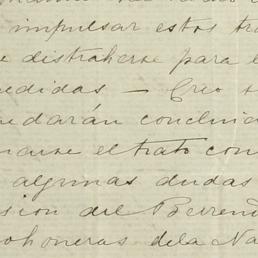 impulsar estos tra
e distraherse para l
edidas — Creo
edarán concluid
narse el trato con
algunas dudas
sion del Berrend
ohoneras dela Na